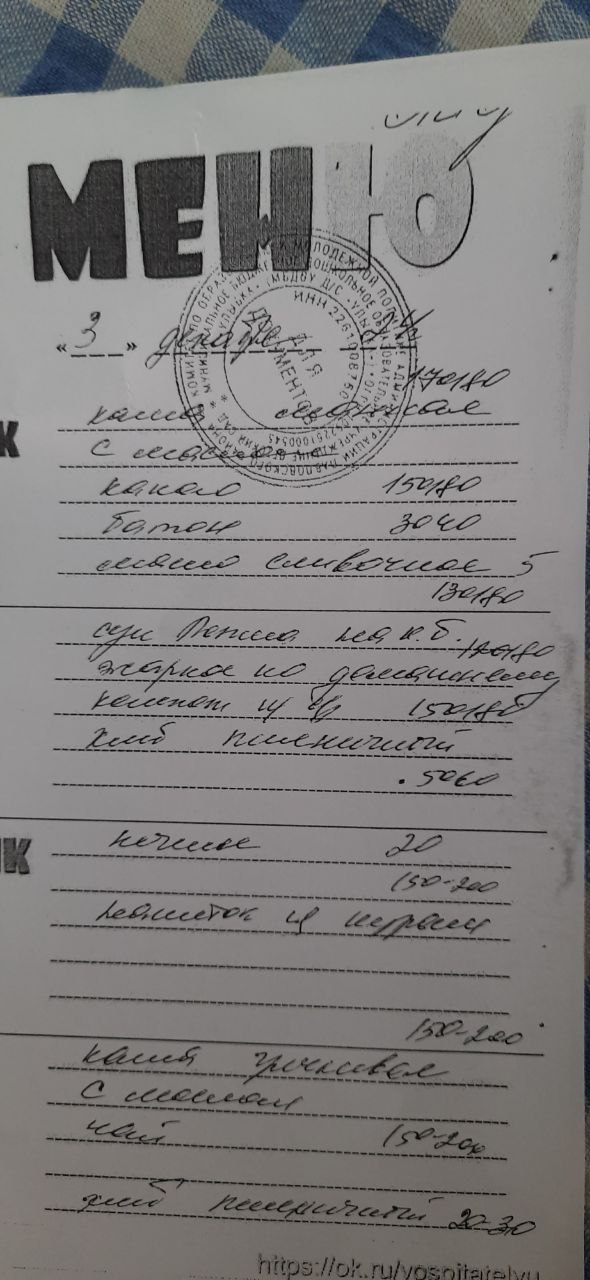 МЕНЮ
« 3 » декабря
170/180
каша манная
К
с маслом
какао 150/180
батон 30 40
масло сливочное 5
130/180
суп Лапша на к.б.
120/180
жаркое по домашнему
компот 150/180
хлеб пшеничный
50 60
печенье 20
К
150-200
напиток из кураги
150-200
каша гречневая
с маслом
чай 150-200
хлеб пшеничный 20-30
ДЛЯ ДОКУМЕНТОВ
https://ok.ru/vospitatelyu